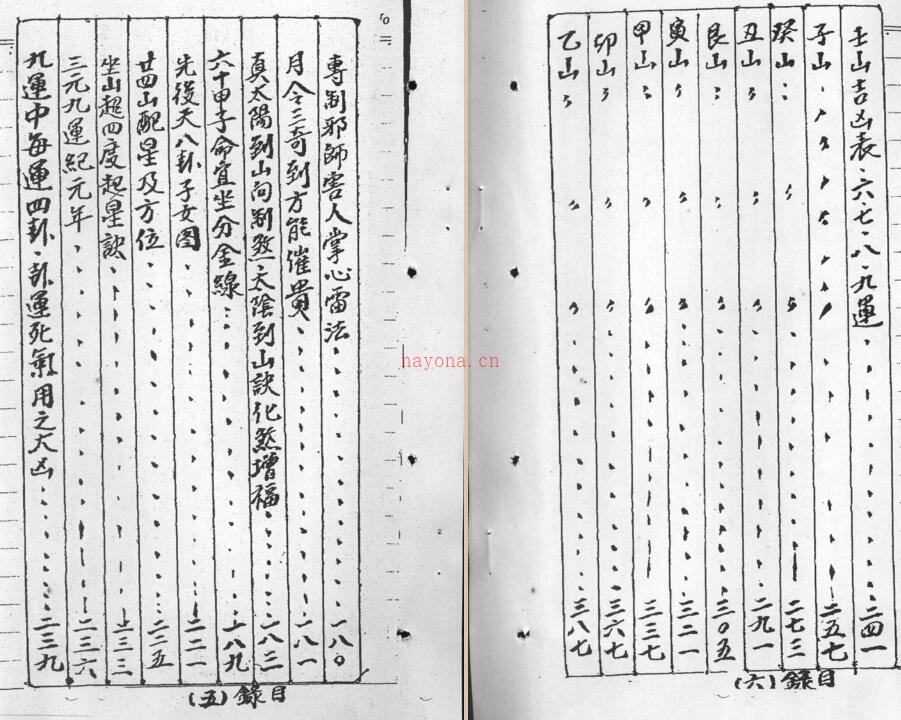 專制邪師害人掌心雷法、一八〇
月令三奇到方能催貴、一八一
真太陽到山向制煞太陰到山訣化煞增福、一八三
六十甲子命宜坐分金線、一八九
先後天八卦子女图、二二一
廿四山配星及方位、二二五
坐山起四度起星訣、二三三
三元九運紀元年、二三六
九運中每運四卦、卦運死氣用之大凶、二三九
目錄(五)
nayona.cn
壬山吉凶表、六七、八、九運、二四一
子山、二五七
癸山、二七三
丑山、二九一
艮山、三〇五
寅山、三二一
甲山、三三七
卯山、三六七
乙山、三八七
目錄(六)